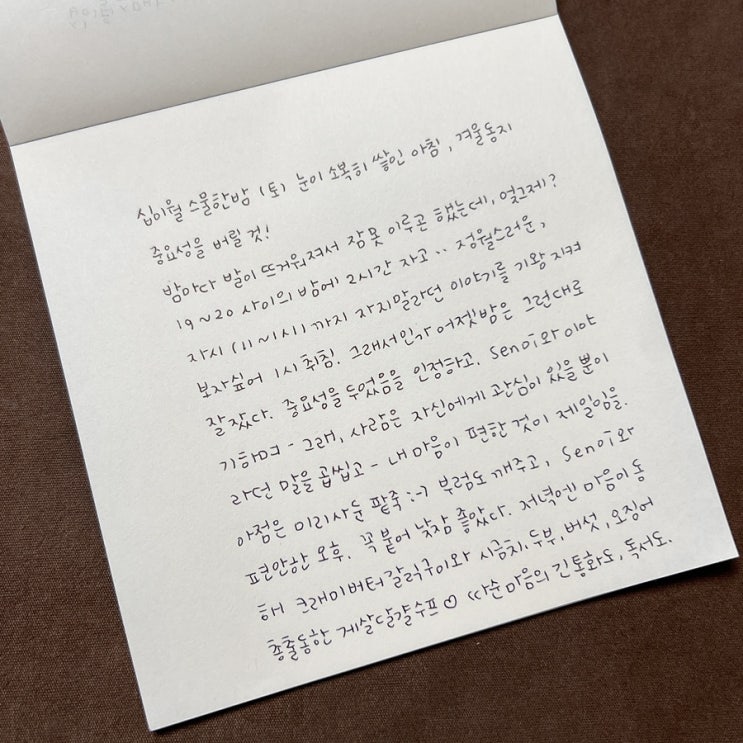 십이월 스물한밤 (토) 눈이 소복히 쌓인 아침, 겨울동지
중요성을 버릴 것!
밤마다 발이 뜨거워져서 잠 못 이루곤 했는데, 엊그제?
19~20 사이의 밤에 2시간 자고.. 정월스러운,
자시 (11~1시) 까지 자지말라던 이야기를 기왕 지켜
보자싶어 1시 취침. 그래서인가 어젯밤은 그런대로
잘 잤다. 중요성을 두었음을 인정하고. Senoi와 이야
기하며 - 그래, 사람은 자신에게 관심이 있을 뿐이
라던 말을 곱씹고 - 내 마음이 편한 것이 제일임을.
아점은 미리사둔 팥죽 :-) 부럼도 깨주고, Senoi와
편안한 오후. 꼭 붙어 낮잠 좋았다. 저녁엔 마음이 동
해 크래미버터갈릭구이와 시금치, 두부, 버섯, 오징어
총출동한 게살달걀수프♡ 따순마음의 긴 통화도, 독서도.